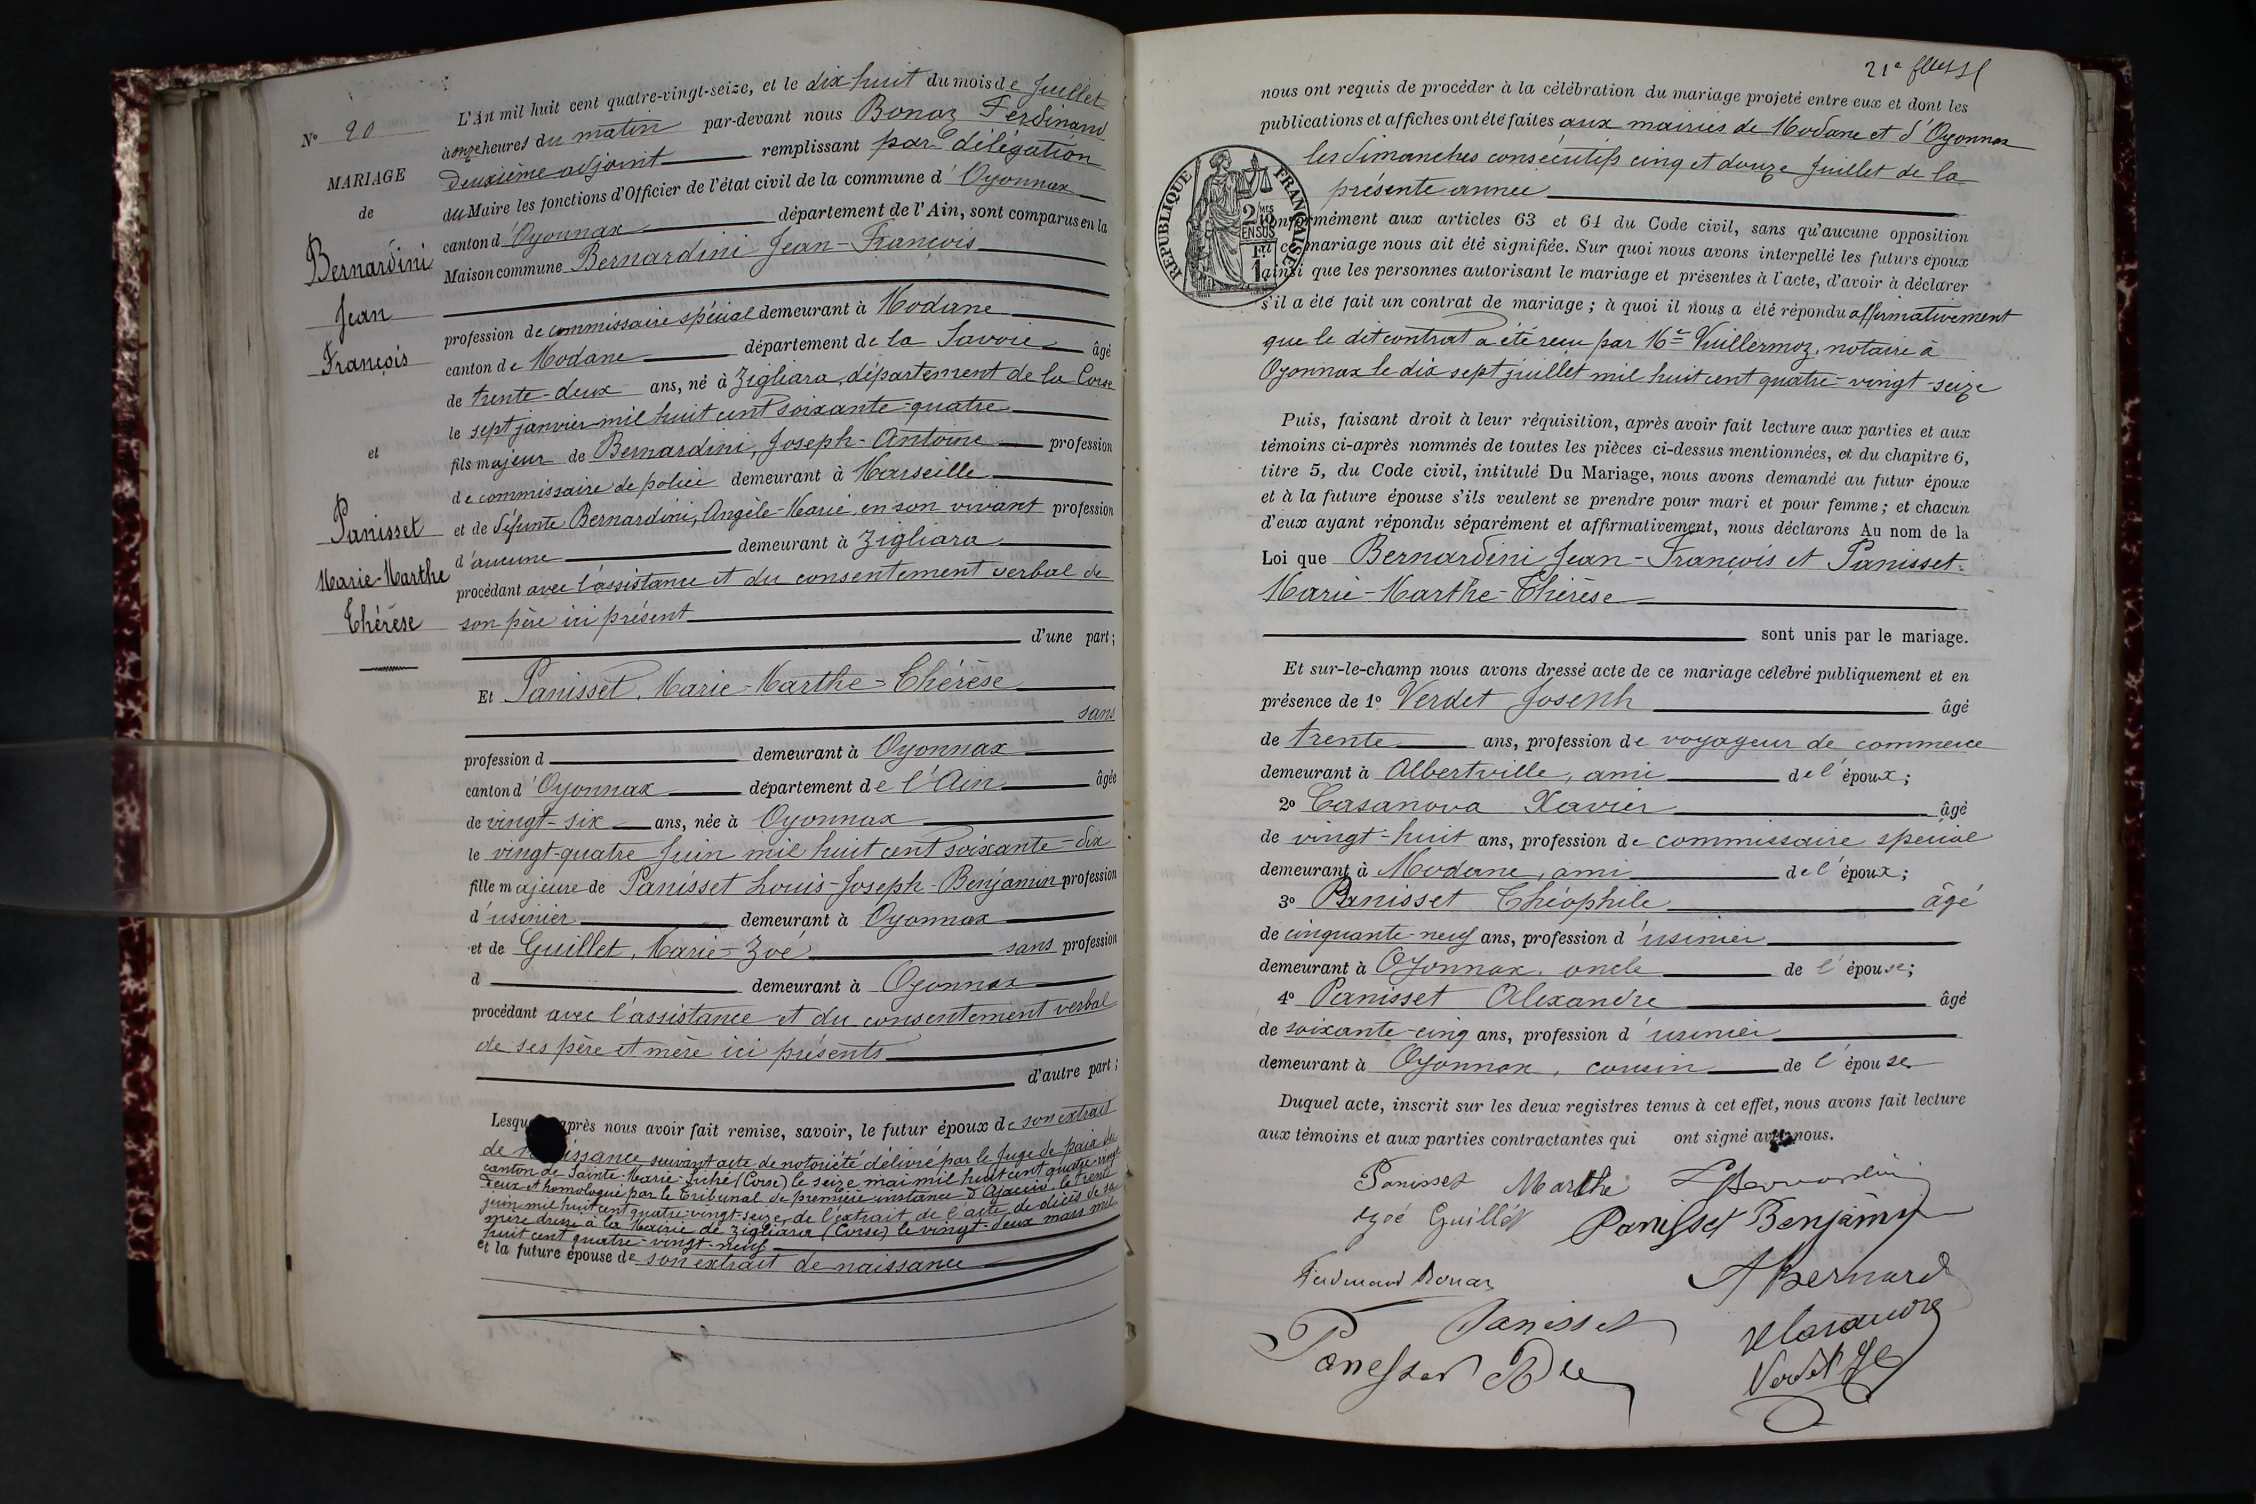 N° 20
MARIAGE
de
Bernardini
Jean
François
et
Panisset
Marie-Marthe
Thérèse
L'An mil huit cent quatre-vingt-seize, et le dix-huit du mois de Juillet
à onze heures du matin par-devant nous Bonaz Ferdinand
deuxième adjoint remplissant par délégation
du Maire les fonctions d'Officier de l'état civil de la commune d'Oyonnax
canton d'Oyonnax département de l'Ain, sont comparus en la
Maison commune Bernardini Jean-François
profession de commissaire spécial demeurant à Modane
canton de Modane département de la Savoie âgé
de trente-deux ans, né à Zigliara, département de la Corse
le sept janvier mil huit cent soixante-quatre
fils majeur de Bernardini, Joseph-Antoine profession
de commissaire de police demeurant à Marseille
et de défunte Bernardini, Angèle-Marie, en son vivant profession
d'aucune demeurant à Zigliara
procédant avec l'assistance et du consentement verbal de
son père ici présent
d'une part;
Et Panisset, Marie-Marthe-Thérèse
sans
profession d demeurant à Oyonnax
canton d'Oyonnax département de l'Ain âgée
de vingt-six ans, née à Oyonnax
le vingt-quatre Juin mil huit cent soixante-dix
fille majeure de Panisset Louis-Joseph-Benjamin profession
d'usinier demeurant à Oyonnax
et de Guillet, Marie-Zoé sans profession
d demeurant à Oyonnax
procédant avec l'assistance et du consentement verbal
de ses père et mère ici présents
d'autre part;
Lesqu après nous avoir fait remise, savoir, le futur époux de son extrait
de naissance suivant acte de notoriété délivré par le Juge de paix du
canton de Sainte-Marie-Siché (Corse) le seize mai mil huit cent quatre-vingt
deux et homologué par le Tribunal de première instance d'Ajaccio, le trente
juin mil huit cent quatre-vingt-seize, de l'extrait de l'acte de décès de sa
mère dressé à la Mairie de Zigliara (Corse) le vingt-deux mars mil
huit cent quatre-vingt-neuf
et la future épouse de son extrait de naissance
21e
nous ont requis de procéder à la célébration du mariage projeté entre eux et dont les
publications et affiches ont été faites aux mairies de Modane et d'Oyonnax
les dimanches consécutifs cinq et douze Juillet de la
présente année
RÉPUBLIQUE FRANÇAISE
2 MES
10
EN SUS
1
conformément aux articles 63 et 64 du Code civil, sans qu'aucune opposition
ce mariage nous ait été signifiée. Sur quoi nous avons interpellé les futurs époux
ainsi que les personnes autorisant le mariage et présentes à l'acte, d'avoir à déclarer
s'il a été fait un contrat de mariage; à quoi il nous a été répondu affirmativement
que le dit contrat a été reçu par Me Vuillermoz, notaire à
Oyonnax le dix sept juillet mil huit cent quatre-vingt-seize
Puis, faisant droit à leur réquisition, après avoir fait lecture aux parties et aux
témoins ci-après nommés de toutes les pièces ci-dessus mentionnées, et du chapitre 6,
titre 5, du Code civil, intitulé Du Mariage, nous avons demandé au futur époux
et à la future épouse s'ils veulent se prendre pour mari et pour femme; et chacun
d'eux ayant répondu séparément et affirmativement, nous déclarons Au nom de la
Loi que Bernardini Jean-François et Panisset
Marie-Marthe-Thérèse
sont unis par le mariage.
Et sur-le-champ nous avons dressé acte de ce mariage célébré publiquement et en
présence de 1° Verdet Joseph âgé
de trente ans, profession de voyageur de commerce
demeurant à Albertville, ami de l'époux;
2° Casanova Xavier âgé
de vingt-huit ans, profession de commissaire spécial
demeurant à Modane, ami de l'époux;
3° Panisset Théophile âgé
de cinquante-neuf ans, profession d'usinier
demeurant à Oyonnax, oncle de l'épouse;
4° Panisset Alexandre âgé
de soixante-cinq ans, profession d'usinier
demeurant à Oyonnax, cousin de l'épouse
Duquel acte, inscrit sur les deux registres tenus à cet effet, nous avons fait lecture
aux témoins et aux parties contractantes qui ont signé avec nous.
Panisset Marthe Bernardini
Zoé Guillet Panisset Benjamin
Ferdinand Bonaz
Panisset
Panisset
Verdet